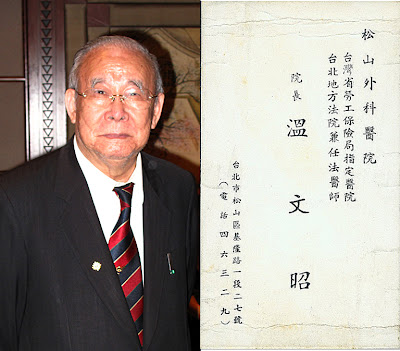 松山外科醫院
台灣省勞工保險局指定醫院
台北地方法院兼任法醫師
院長 溫文昭
台北市松山區基隆路一段二七號
（電話四六三二九）